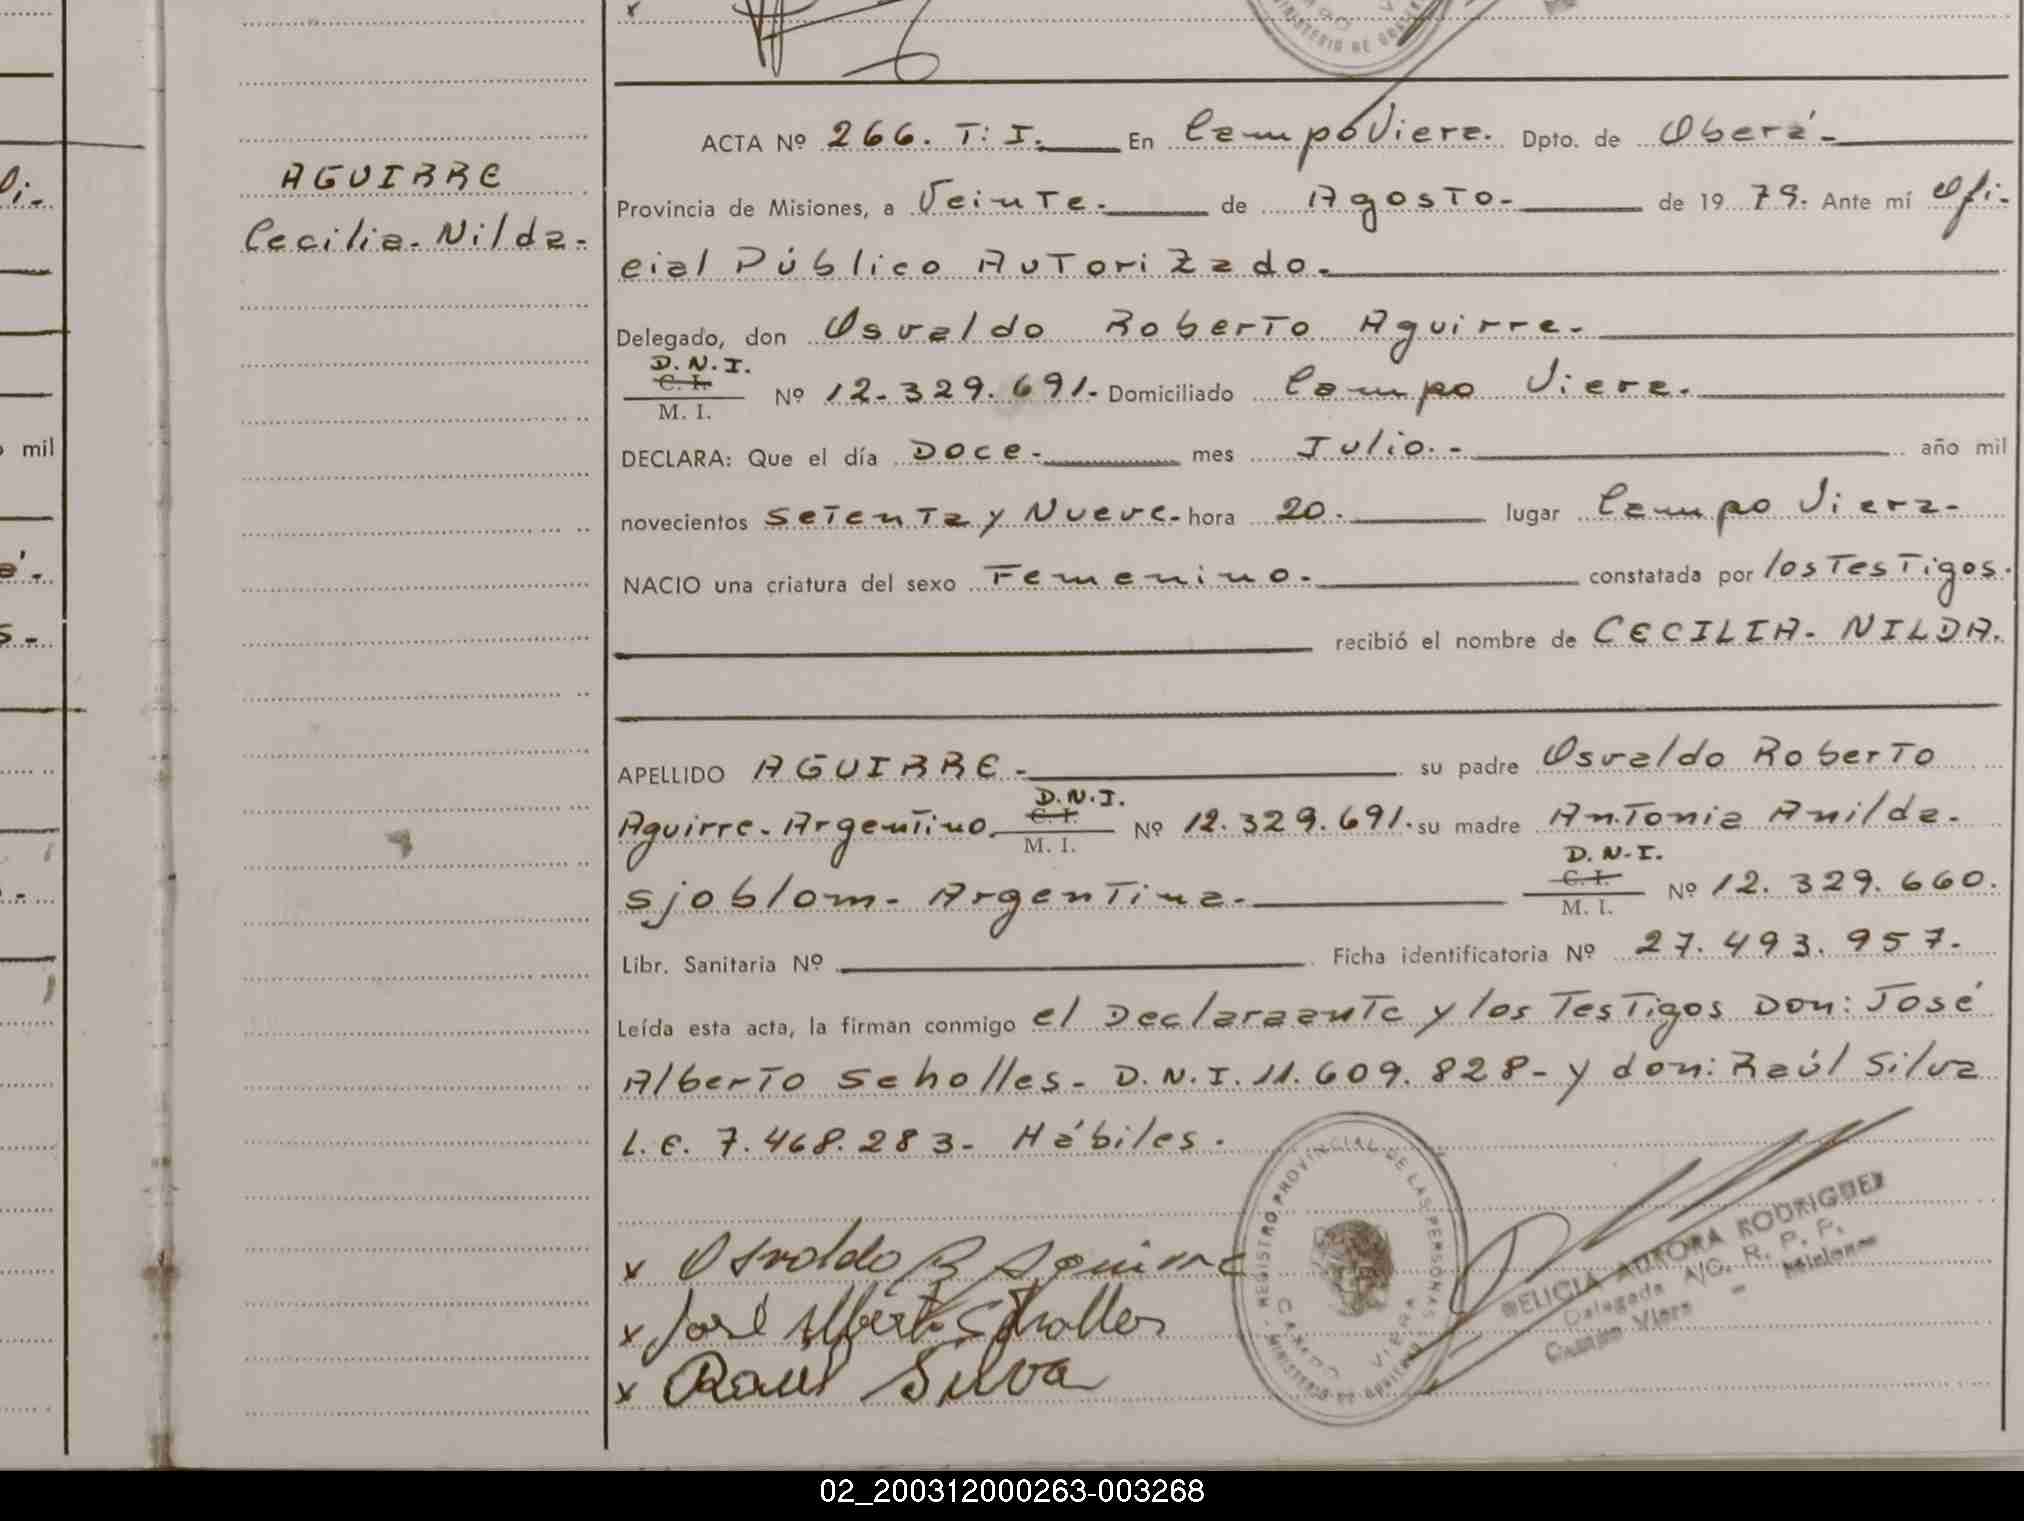 AGUIRRE
Cecilia. Nilda.
ACTA Nº 266. T: I. En Campo Viera. Dpto. de Oberá
Provincia de Misiones, a Veinte. de Agosto de 19 79. Ante mí Ofi-
cial Público Autorizado.
Delegado, don Osvaldo Roberto Aguirre.
D.N.I.
C. I.
M. I.
Nº 12.329.691. Domiciliado Campo Viera.
DECLARA: Que el día Doce mes Julio. año mil
novecientos Setenta y Nueve. hora 20. lugar Campo Viera.
NACIO una criatura del sexo Femenino. constatada por los Testigos.
recibió el nombre de CECILIA. NILDA.
APELLIDO AGUIRRE su padre Osvaldo Roberto
D.N.I.
C. I.
Aguirre. Argentino. M. I. Nº 12.329.691. su madre Antonia Anilda.
D.N.I.
C. I.
Sjoblom. Argentina. M. I. Nº 12.329.660.
Libr. Sanitaria Nº Ficha identificatoria Nº 27.493.957.
Leída esta acta, la firman conmigo el Declaraante y los Testigos Don: José
Alberto Scholles. D.N.I. 11.609.828- y don: Raúl Silva
L.E. 7.468.283- Hábiles.
x Osvaldo R Aguirre
x José Alberto Scholles
x Raul Silva
REGISTRO PROVINCIAL DE LAS PERSONAS
CAMPO VIERA
MINISTERIO DE GOBIERNO
DELICIA AURORA RODRIGUEZ
Delegada A/C. R. P. P.
Campo Viera - Misiones
o mil
02_200312000263-003268